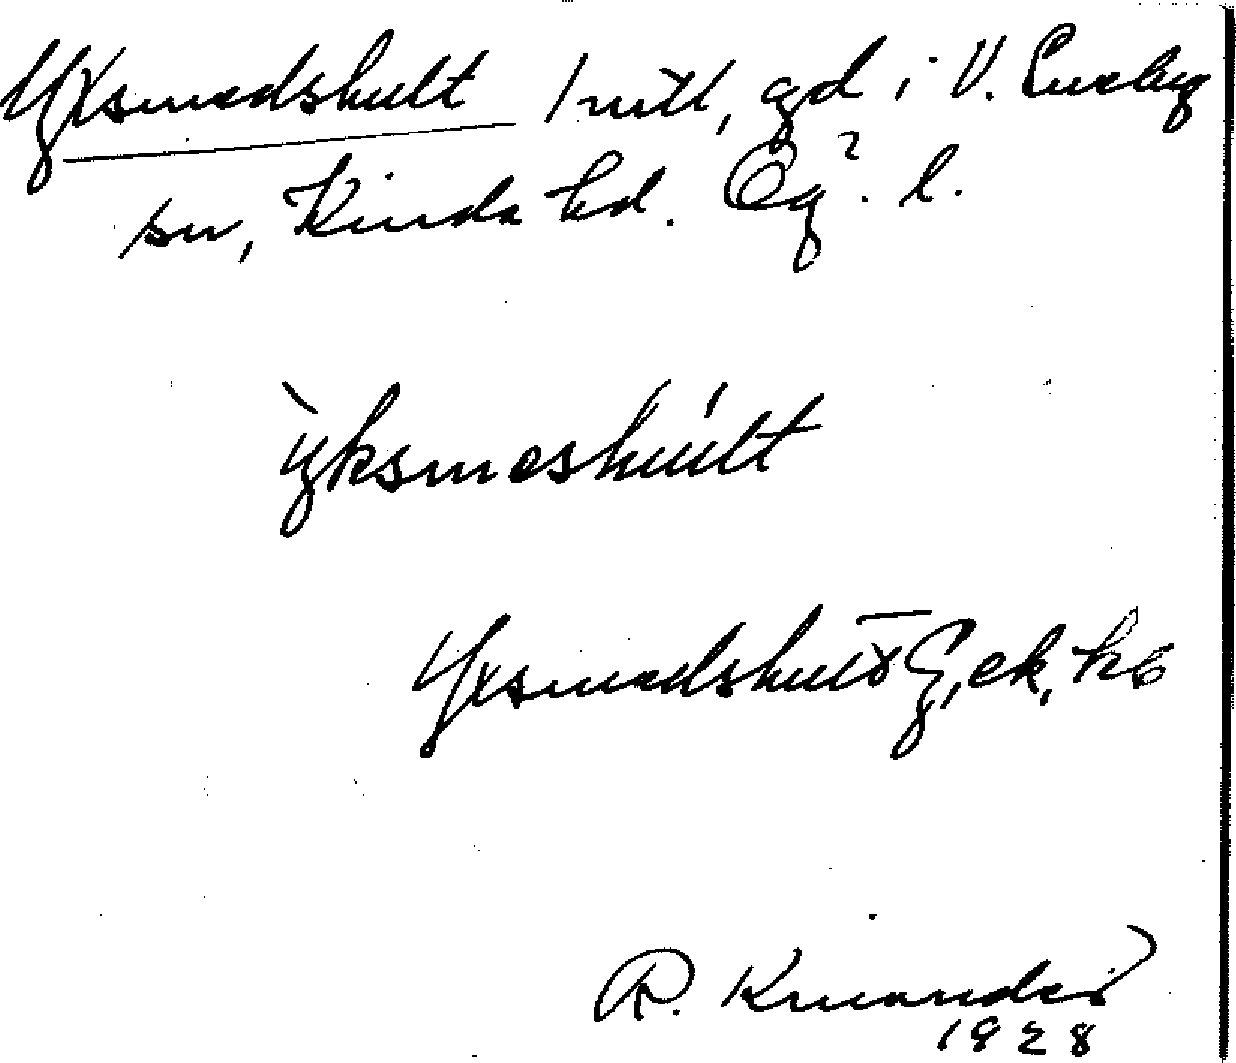 Yxsmedshult 1 mtl, gd i V. Eneby
sn, Kinda hd. Ög. l.
ỳksmeshúlt
Yxsmedshult G, ek, kb
R. Knuander
1928